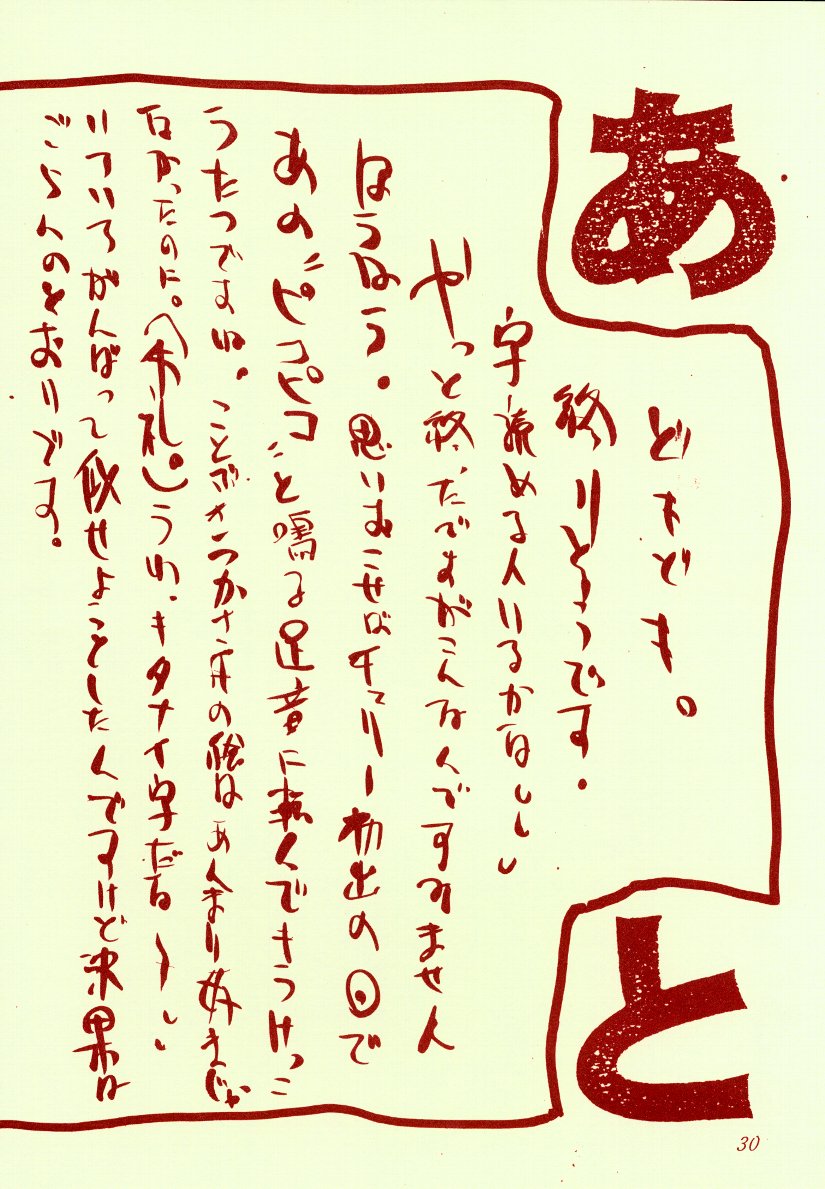 あと
どもども。
終りどうです。
字読める人いるかなししし
やっと終ったですがこんなんですみません
ほうほう。思いおこせばチェリー初出の回で
あの"ピコピコ"と鳴る足音に転んでもうけっこ
うたつですね。ことぶきつかさ宇の絵はあんまり好きじゃ
なかったのに。(失礼。)うわ、キタナイ字だな〜しし
いろいろがんばって似せようとしたんですけど結果は
ごらんのとおりです。
30